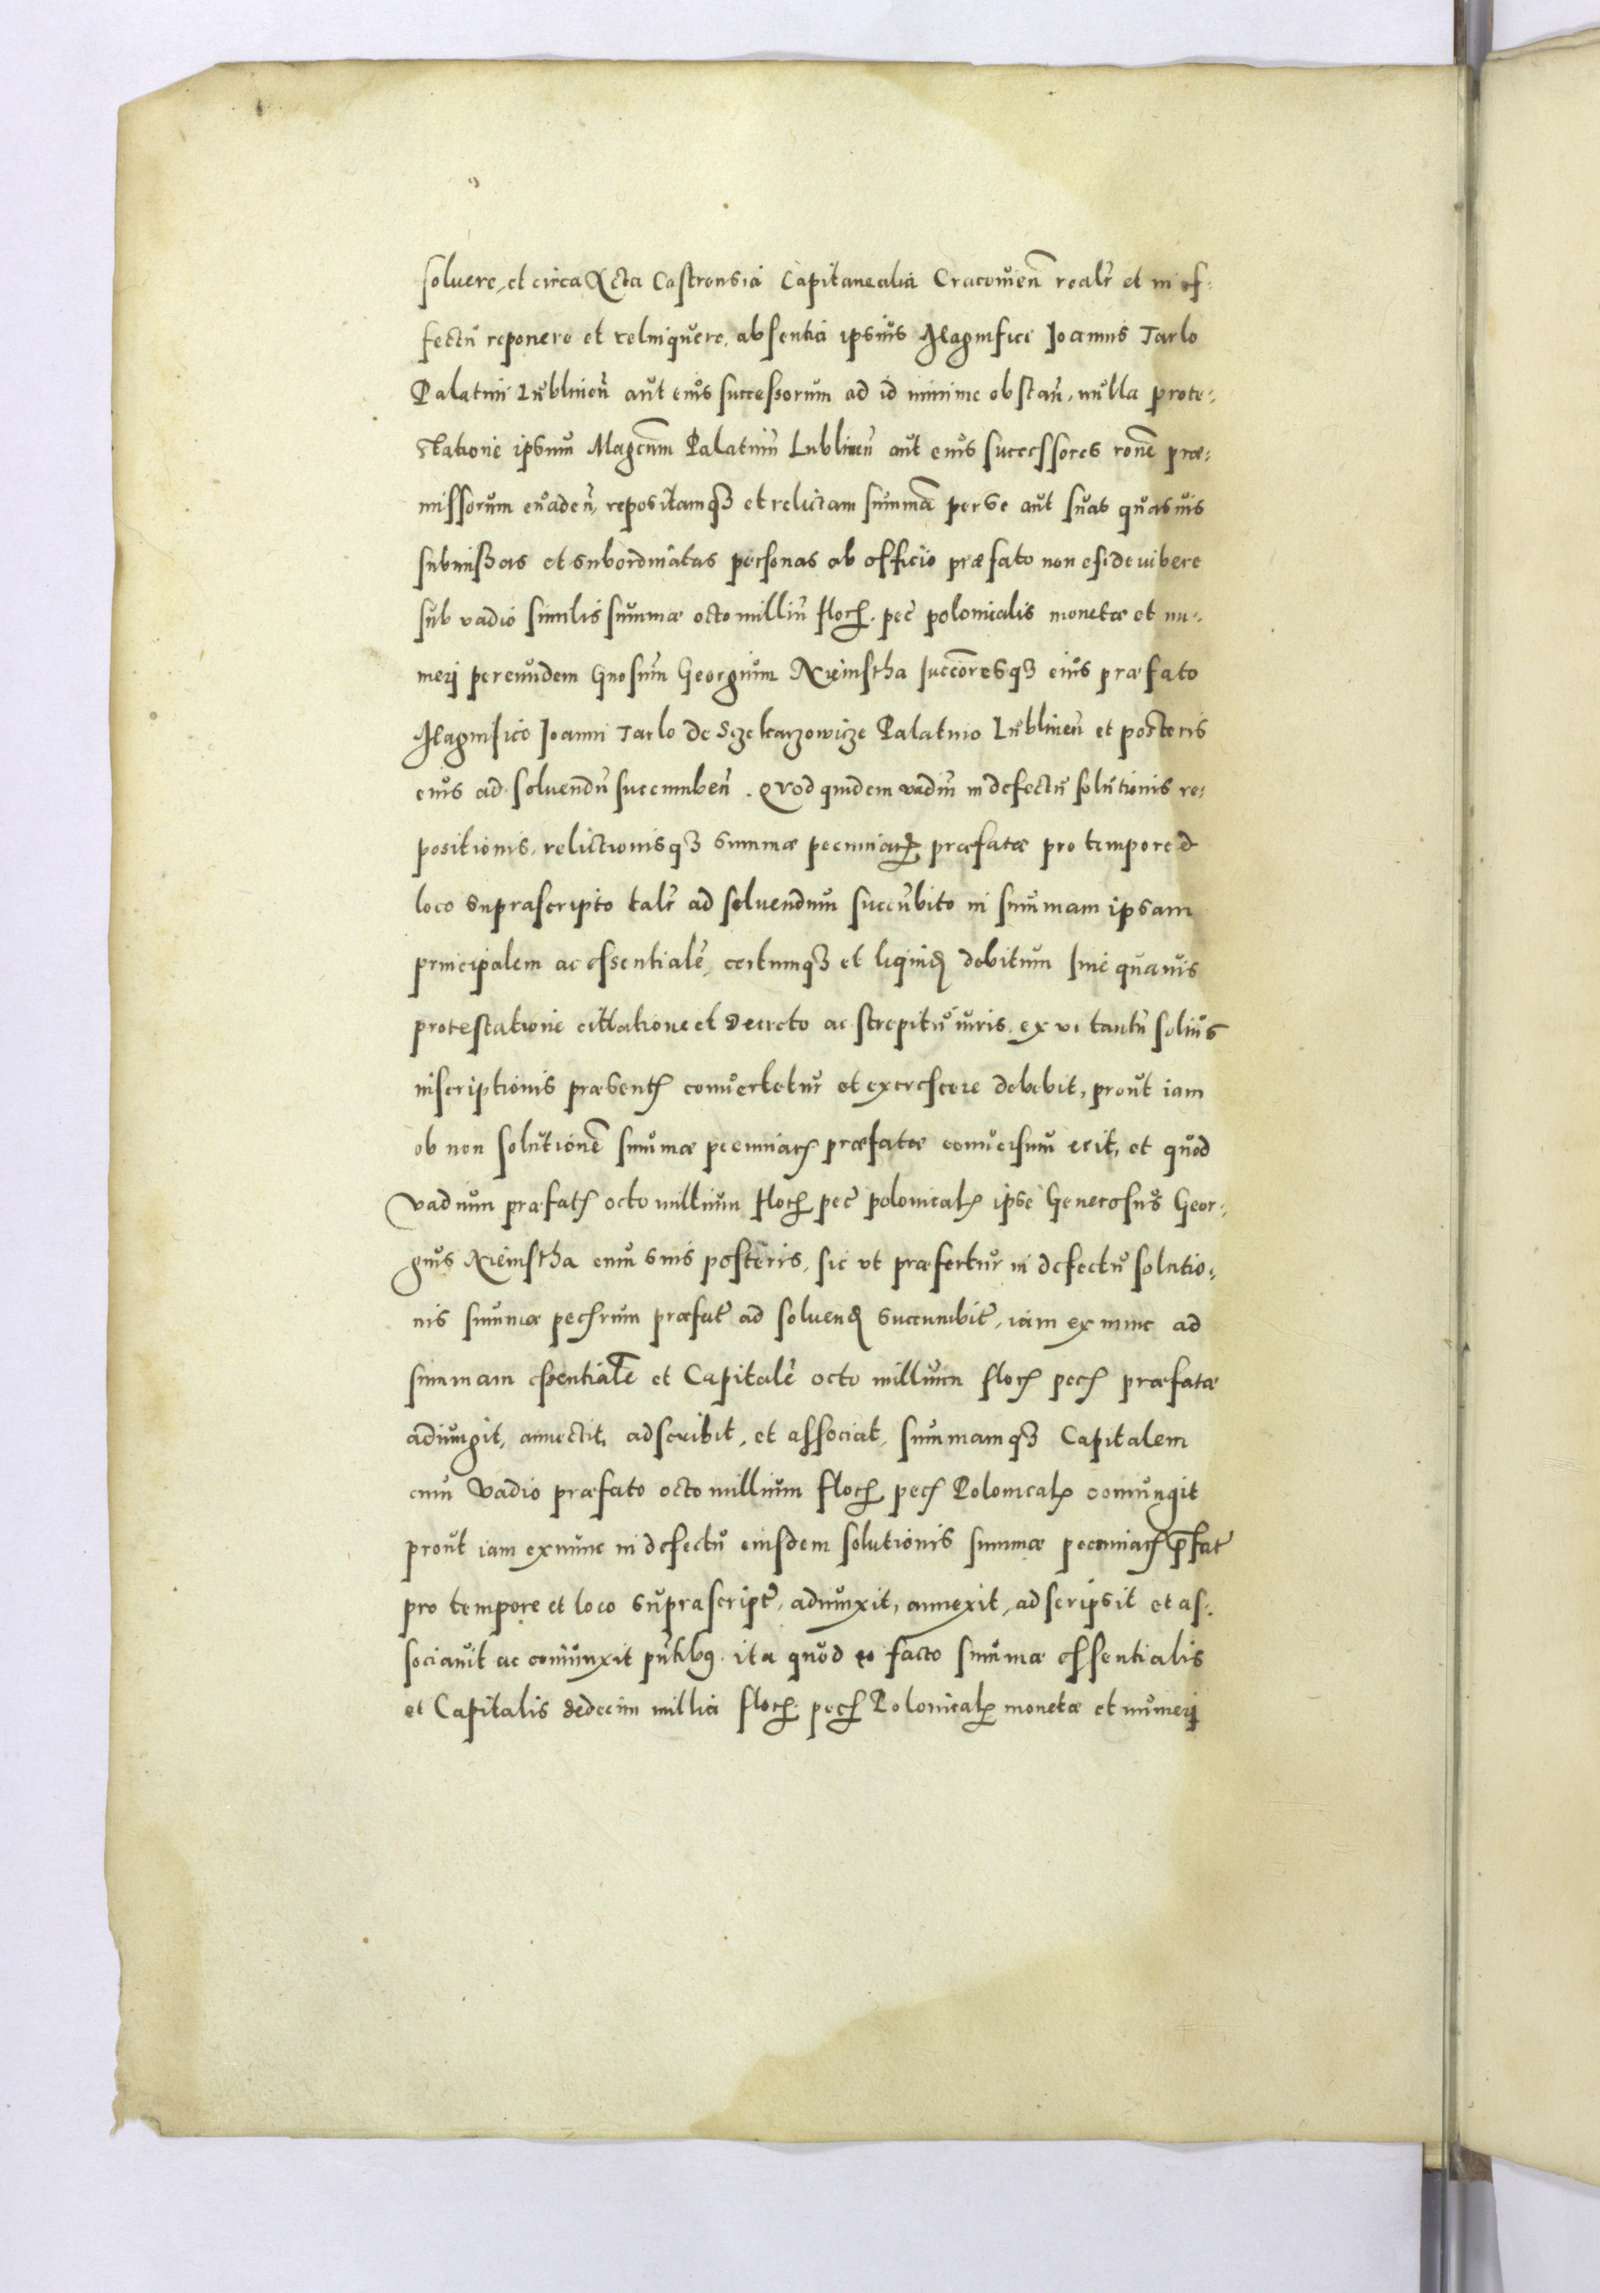 soluere, et circa Acta Castrensia Capitanealia Cracouien̄ realr̄ et in ef-
fectū reponere et relinquere, absentia ipsius Magnifici Joannis Tarlo
Palatini Lublinen̄ aut eius successorum ad id minime obstan̄, nulla prote-
statione ipsum Magcum̄ Palatinū Lublinen̄ aut eius successores ronē præ-
missorum euaden̄, repositamqȝ et relictam summā per se aut suas quasuis
submissas et subordinatas personas ab officio præfato non
sub vadio similis summæ octo milliū floꝝ. pec̄ polonicalis monetæ et nu-
merj per eundem Gnosum̄ Georgium Niemstha succōresqȝ eius præfato
Magnifico Joanni Tarlo de Szczekarzowicze Palatino Lublinen̄ et posteris
eius ad soluendū succumben̄. Quod quidem vadiū in defectū solutionis re-
positionis, relictionisqȝ summæ pecuniaꝝ præfatæ pro tempore et
loco suprascripto talr̄ ad soluendum succubito in summam ipsam
principalem ac essentialē, certumqȝ et liquiđ debitum sine quauis
protestatione citatione et decreto ac strepitu iuris, ex vi tantū solius
inscriptionis præsentꝭ conuertetur et excrescere debebit, prout iam
ob non solutionē summæ pecuniaꝝ præfatæ conuersum erit, et quod
vadium præfatꝭ octo millium floꝝ pec̄ polonicalꝭ ipse Generosus Geor-
gius Niemstha cum suis posteris, sic ut præfertur in defectu solutio-
nis summæ pecꝝrum præfat̄ ad soluenđ succumbit, iam ex nunc ad
summam essentialē et Capitalē octo millium floꝝ pecꝝ præfatæ
adiungit, annectit, adscribit, et associat, summamqȝ Capitalem
cum Vadio præfato octo millium floꝝ pecꝝ Polonicalꝭ coniungit
prout iam exnunc in defectu eiusdem solutionis summæ pecuniaꝝ p̄fat̄
pro tempore et loco suprascript̄, adiunxit, annexit, adscripsit et as-
sociauit ac coniunxit pn̄tibꝰ. ita quod eo facto summæ essentialis
et Capitalis sedecim millia floꝝ. pecꝝ Polonicalꝭ monetæ et numerj